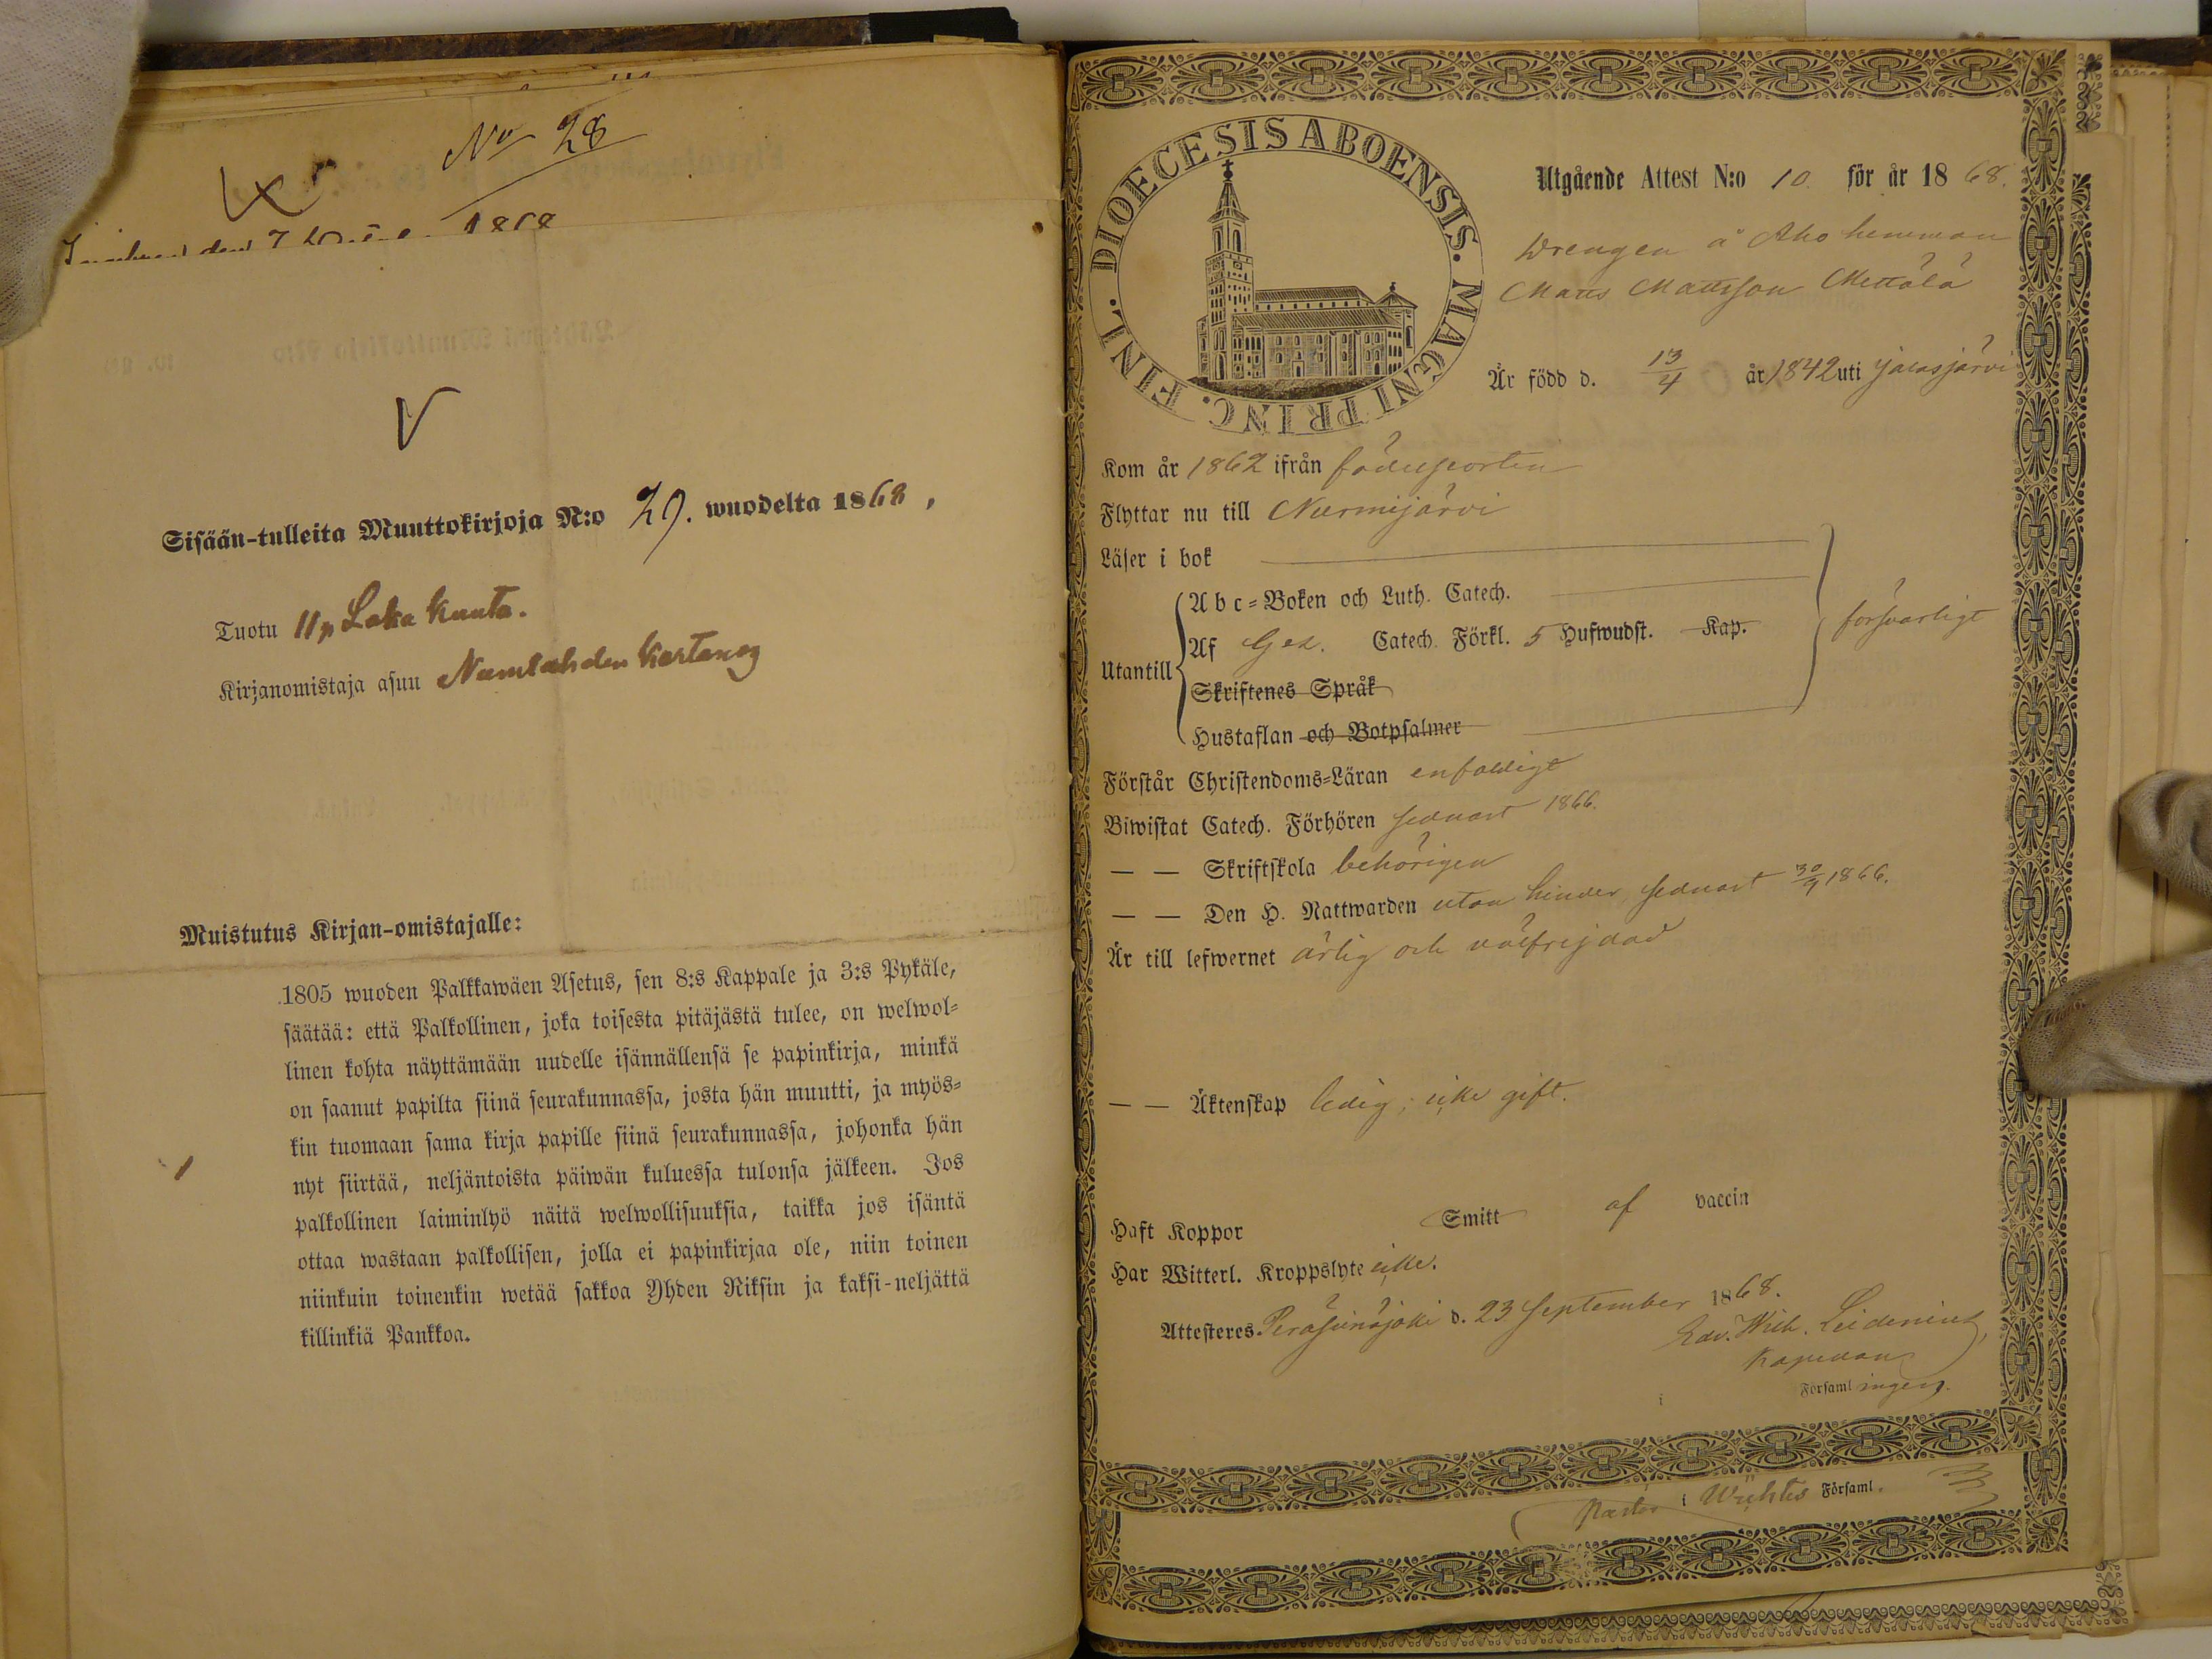 No 28
Sisään-tulleita Muuttokirjoja N:o 29. wuodelta 1868,
Tuotu 11 p Loka kuuta.
Kirjanomistaja asuu Numlahden Kartanog
Muistutus Kirjan-omistajalle:
1805 wuoden Palkkawäen Asetus, sen 8:s Kappale ja 3:s Pykäle,
säätää: että Palkollinen, joka toisesta pitäjästä tulee, on welwol=
linen kohta näyttämään uudelle isännällensä se papinkirja, minkä
on saanut papilta siinä seurakunnassa, josta hän muutti, ja myös=
kin tuomaan sama kirja papille siinä seurakunnassa, johonka hän
nyt siirtää, neljäntoista päiwän kuluessa tulonsa jälkeen. Jos
palkollinen laiminlyö näitä welwollisuuksia, taikka jos isäntä
ottaa wastaan palkollisen, jolla ei papinkirjaa ole, niin toinen
niinkuin toinenkin wetää sakkoa Yhden Riksin ja kaksi-neljättä
killinkiä Pankkoa.
DIOECESIS ABOENSIS. MAGNI PRINC. FINL.
Utgående Attest N:o 10. för år 1868.
Drengen å Aho hemman
Matts Mattsson Mettälä
Är född d. 13/4 år 1842 uti Jalasjärvi
Kom år 1862 ifrån födelseorten
Flyttar nu till Nurmijärvi
Läser i bok
Abc=Boken och Luth. Catech.
Utantill Af Gez. Catech. Förkl. 5 Hufwudst. Kap. försvarligt
Skriftenes Språk
Hustaflan och Botpsalmer
Förstår Christendoms=Läran enfaldigt
Biwistat Catech. Förhören sednast 1866.
— — Skriftskola behörigen
— — Den H. Nattwarden utan hinder, sednast 30/9 1866.
Är till lefwernet ärlig och välfrejdad
— — Äktenskap ledig; icke gift.
Haft Koppor Smitt af vaccin
Har Witterl. Kroppslyte icke.
Attesteres. Peräseinäjoki d. 23 September 1868.
Edv. Wilh.
Kapellan
i Församlingen.
Pastor i Wichtis Församl.